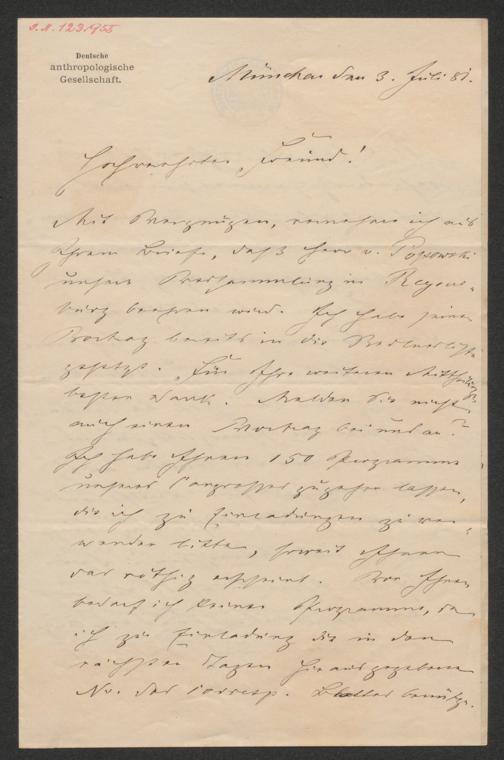 J. N. 123.955
Deutsche
anthropologische
Gesellschaft.
München den 3. Juli 81.
Hochverehrter Freund!
Mit Vergnügen vernehme ich aus
Ihrem Briefe, daß Herr v.
unsere Versammlung in Regens-
burg beehren wird. Ich habe seinen
Vortrag bereits in die Rednerliste
gesetzt. Für Ihre weiteren Mittheilungen
besten Dank. Melden Sie nicht
auch einen Vortrag bei uns an?
Ich habe Ihnen 150 Programme
unseres Congresses zugehen lassen,
die ich zu Einladungen zu ver-
wenden bitte, soweit Ihnen
das nöthig erscheint. Ihnen
bedarf ich keiner Programme, da
ich zur Einladung die in den
nächsten Tagen herausgegebene
Nr. des Corresp. Blattes benütze.